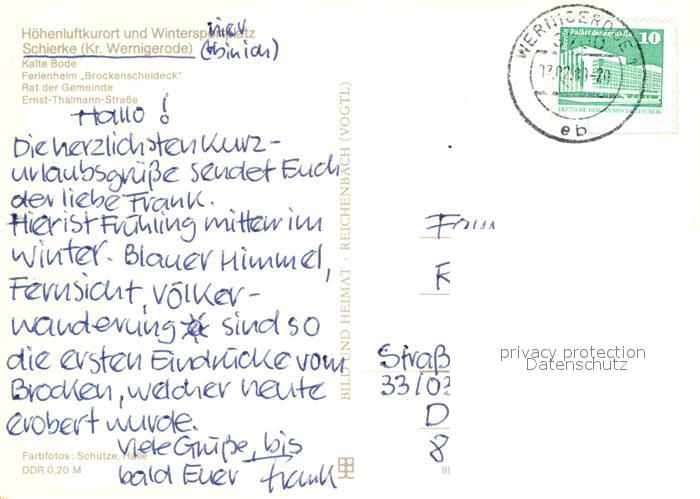 Höhenluftkurort und Wintersportplatz
hier
Schierke (Kr. Wernigerode) (bin ich)
Kalte Bode
Ferienheim „Brockenscheideck"
Rat der Gemeinde
Ernst-Thälmann-Straße
Hallo!
Die herzlichsten Kurz-
urlaubsgrüße sendet Euch
der liebe Frank.
Hier ist Frühling mitten im
Winter. Blauer Himmel,
Fernsicht, Völker-
wanderung sind so
die ersten Eindrücke vom
Brocken, welcher heute
erobert wurde.
Viele Grüße, bis
bald Euer Frank
Farbfotos: Schütze, Halle
DDR 0,20 M
BILD UND HEIMAT · REICHENBACH (VOGTL)
III
WERNIGERODE 1
eb
Berlin, Palast der Republik
10
DEUTSCHE DEMOKRATISCHE REPUBLIK
Straß
33/03
D
8
privacy protection
Datenschutz